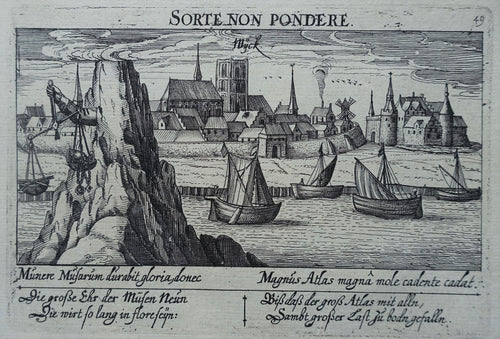 SORTE NON PONDERE.
49
Wyck
Munere Musarum durabit gloria, donec
Magnus Atlas magnâ mole cadente cadat.
Die große Ehr der Müsen Neün
Die wirt so lang in flore seÿn:
Biß daß der groß Atlas mit alln,
Sambt großer Last zu bodn gefalln.